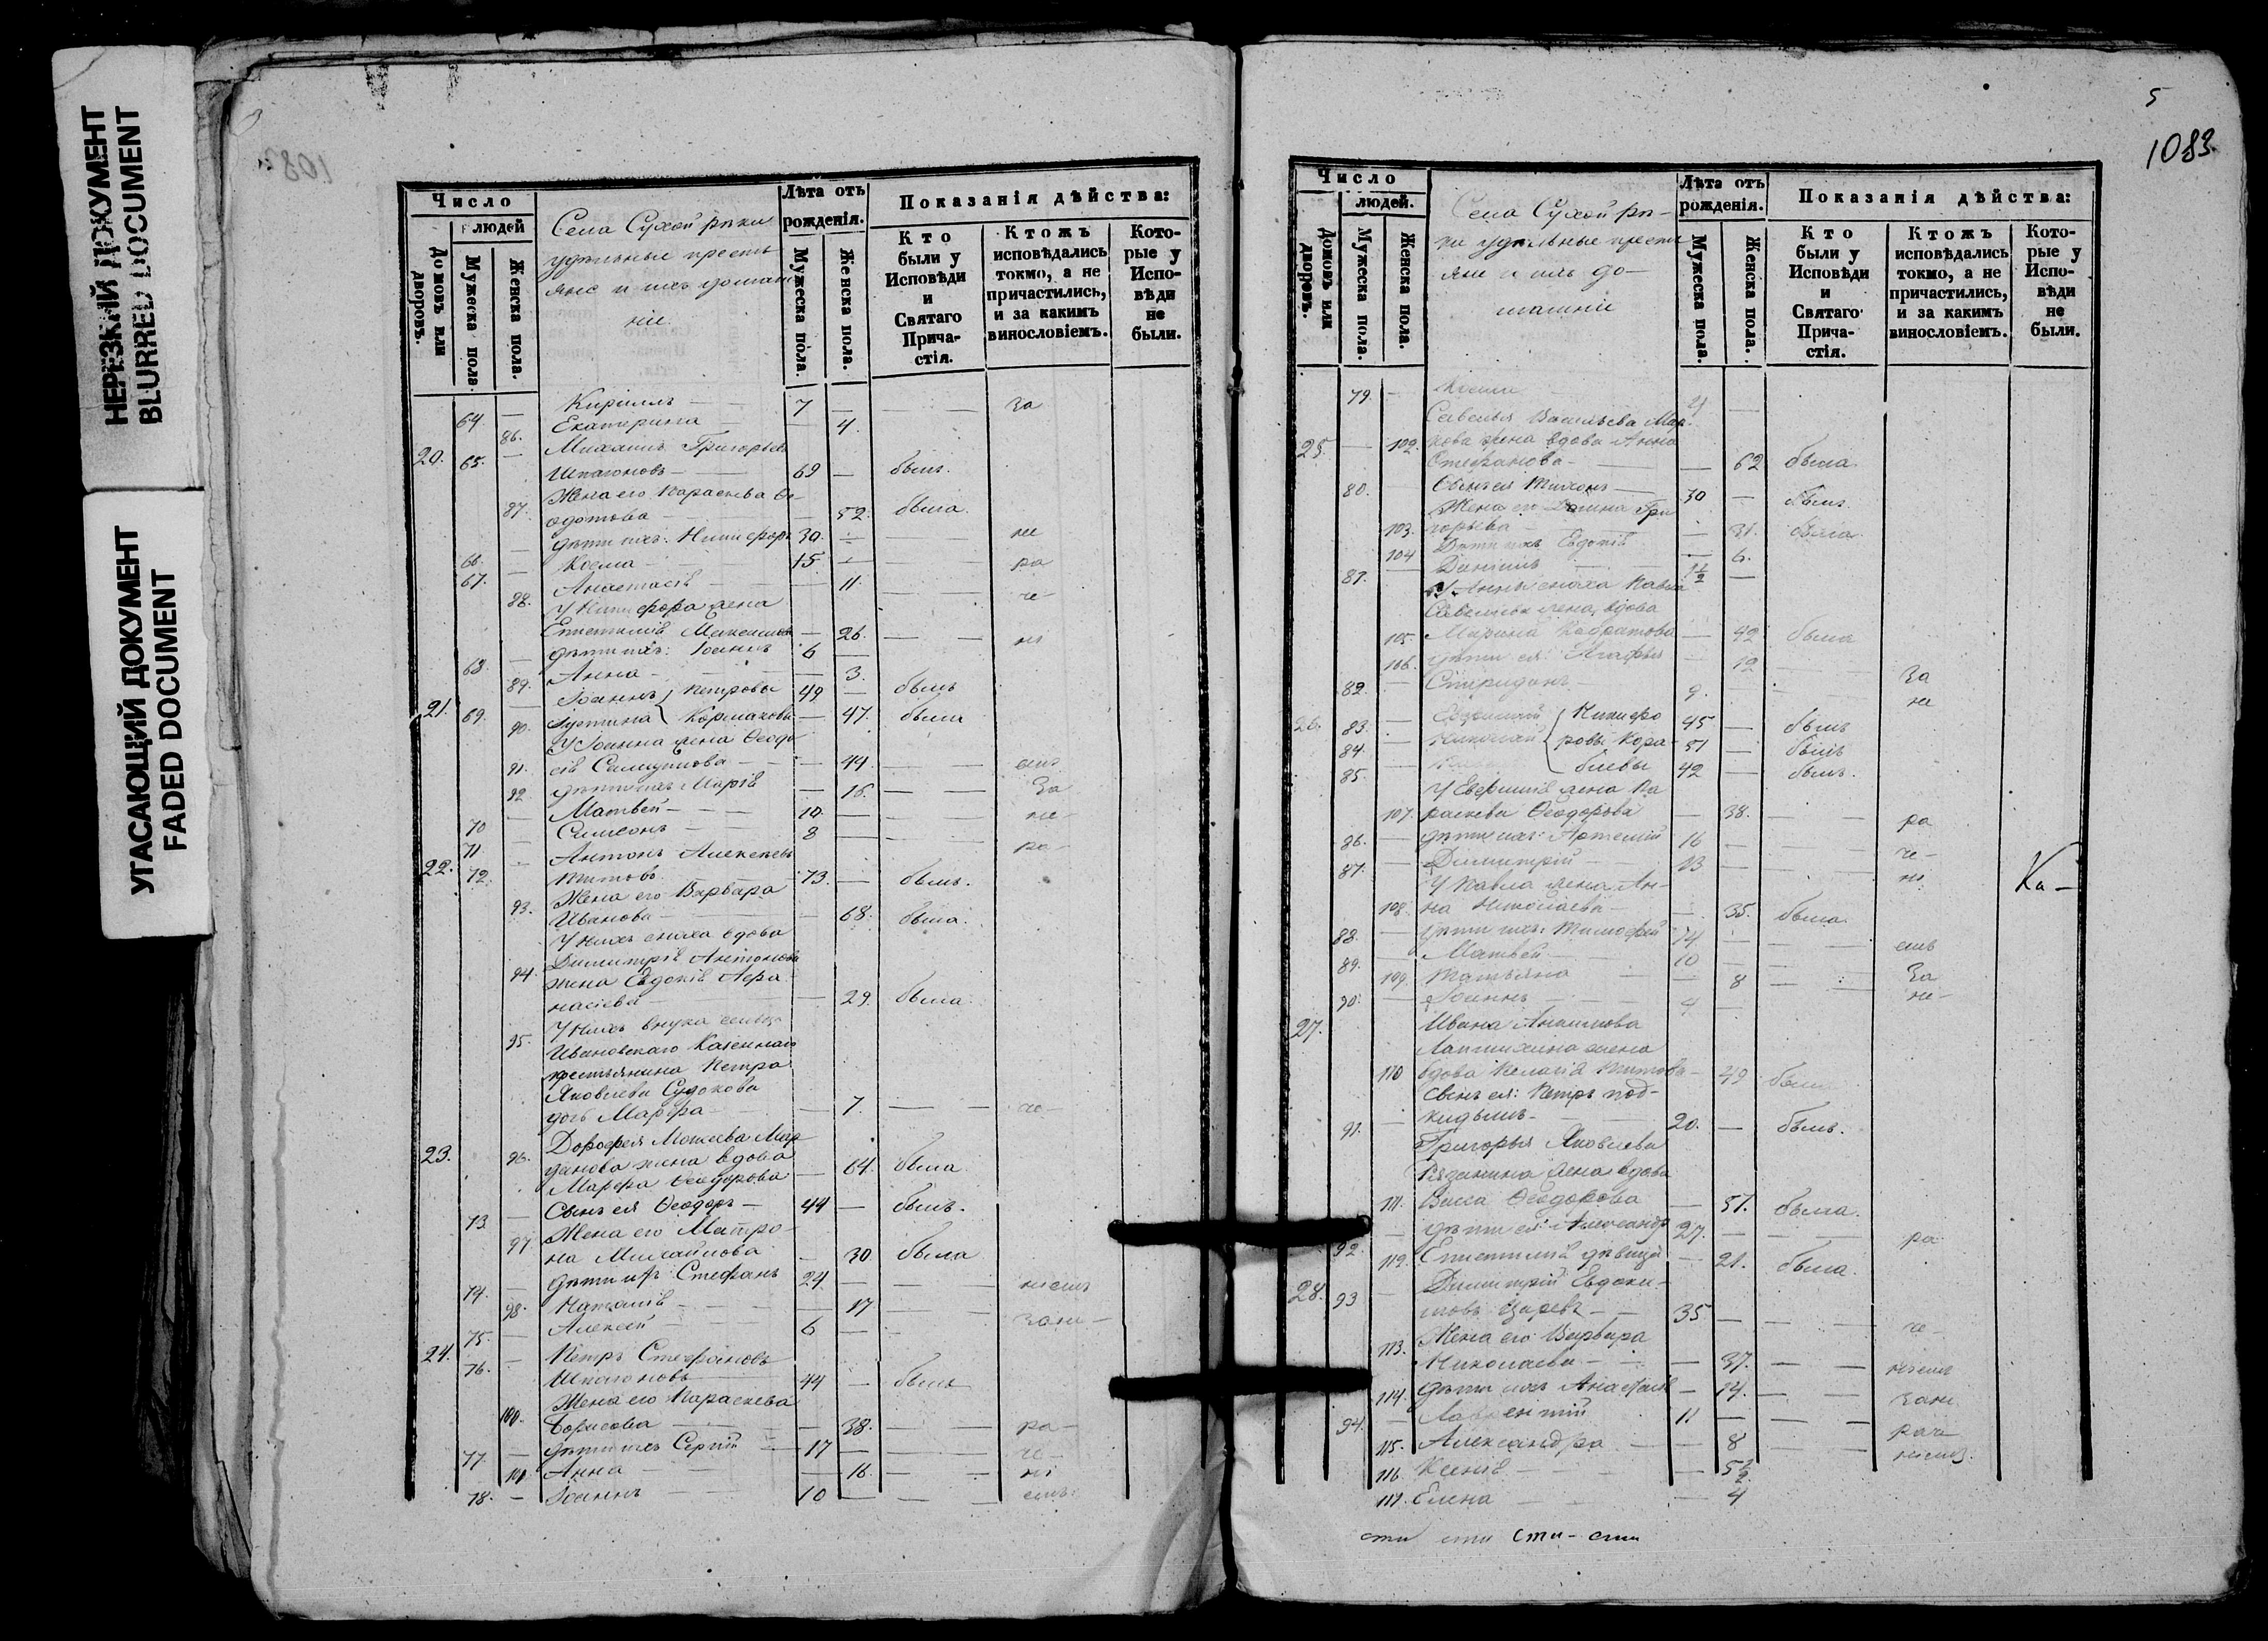 НЕРЕЗКИЙ ДОКУМЕНТ
BLURRED DOCUMENT
УГАСАЮЩИЙ ДОКУМЕНТ
FADED DOCUMENT
Число
людей
Домовъ или дворовъ.
Мужеска пола.
Женска пола.
Села Сухой рѣки
удѣльные кресть
яне и ихъ домаш
ніе.
Лѣта отъ
рожденія.
Мужеска пола.
Женска пола.
Показанія дѣйства:
Кто
были у
Исповѣди
и
Святаго
Прича-
стія.
Ктожъ
исповѣдались
токмо, а не
причастились,
и за какимъ
винословіемъ.
Кото-
рые у
Испо-
вѣди
не
были.
64. — Кириллъ — 7 — — За
86. Екатерина — 4.
20. 65. — Михаилъ Григорьевъ
Шпагоновъ — 69 — былъ.
87. Жена его Параскева Ѳе-
одотова — 52. была.
66. — дѣти ихъ: Никифоръ 30. — — не
67. — Косма — 15 — — ра
88. Анастасія — 11 — — че-
У Никифора жена
Епистимія Максимова — 26. — — ні
68. — дѣти ихъ: Іоаннъ 6 —
89. Анна — 3.
21. 69. Іоаннъ Петровы 49 — былъ
90. Іустина Кормаковы — 47. была
У Іоанна жена Ѳеодо
91. сія Самуилова — 44. — емъ
92. дѣти ихъ Марія — 16. — — За
70 — Матвей — 10. — — не-
71 — Симеонъ — 8 — — ра-
22. 72. Антонъ Алексѣевъ
Титовъ. 73. — былъ.
93. Жена его Варвара
Иванова — 68. была.
У нихъ сноха вдова
Димитрія Антонова
94. жена Евдокія Аѳа
насіева — 29. была.
У нихъ внука сельца
95. Ивановскаго Казеннаго
крестьянина Петра
Яковлева Судокова
дочь Марѳа — 7. — — че-
23. 96. Дороѳея Моисеева Мар
данова жена вдова
Марѳа Ѳеодорова — 64. была
73 — Сынъ ея Ѳеодоръ — 44 — былъ.
97 Жена его Матро-
на Михайлова — 30. была
74. — дѣти ихъ Стефанъ 24 — — ніемъ
98. Наталія — 17 — Зане-
75. — Алексѣй — 6 —
24. 76. — Петръ Стефановъ
Шпагоновъ 44 — былъ
100. Жена его Параскева
Борисова — 38. — — ра-
77. — дѣти ихъ Сергій — 17 — — че-
101 Анна — 16. — — ні
78. — Іоаннъ 10 — — емъ.
5
1083.
Число
людей.
Домовъ или дворовъ.
Мужеска пола.
Женска пола.
Села Сухой рѣ-
ки удѣльные кресть
яне и ихъ до-
машніе
Лѣта отъ
рожденія.
Мужеска пола.
Женска пола.
Показанія дѣйства:
Кто
были у
Исповѣди
и
Святаго
Прича-
стія.
Ктожъ
исповѣдались
токмо, а не
причастились,
и за какимъ
винословіемъ.
Кото-
рые у
Испо-
вѣди
не
были.
79. — Косма 4 —
Савелья Васильева Мар-
25. — 102. кова жена вдова Анна
Стефанова — 62 была
80. Сынъ ея Тихонъ — 30 — былъ
Жена его Домна Гри
103. горьева — 31. была
104 Дѣти ихъ Евдокія — 6.
81. — Даніилъ 1½ —
У Анны сноха Павла
Савельева жена, вдова
105. Марина — 42 была
106. дѣти ея: Агафья — 12 — За
82. — Спиридонъ — 9. — не
26. 83. — Никифо 45 — былъ
84. — Николай ровы Кора- 51 — былъ
85. — блевы 42 — былъ.
У жена Па
107. раскева Ѳеодорова — 38. — — ра
86. — дѣти ихъ: Артемій 16 — — че-
87. — Димитрій — 13 — — ні Ка-
У Павла жена Ан-
108. на Николаева — 35. была.
88. — дѣти ихъ: Тимофей 14 — — емъ
89. — Матвей — 10 — — За
109. Татьяна — 8 — — не-
90. — Іоаннъ — 4 —
27. Ивана
жена
110 вдова Пелагія Титова — 49 была
Сынъ ея: Петръ под-
91. — кидышъ — 20. — былъ.
Григорья Яковлева
Рязанина жена вдова
111. Васса Ѳеодорова — 51. была.
92. — дѣти ея: Александръ 27. — — ра
112. Епистимія дѣвица — 21. была.
28. 93 — Димитрій Евдоки-
мовъ Царевъ — 35 — — че-
113. Жена его Варвара
Николаева — — 37. — — ніемъ
114. дѣти ихъ Анастасія — 14. — — Зане
94. — Лаврентій 11 — — раче
115. Александра — 8 — — ніемъ.
116. Ксенія — 5½
117. Елена — 4
сти сти сти - сти